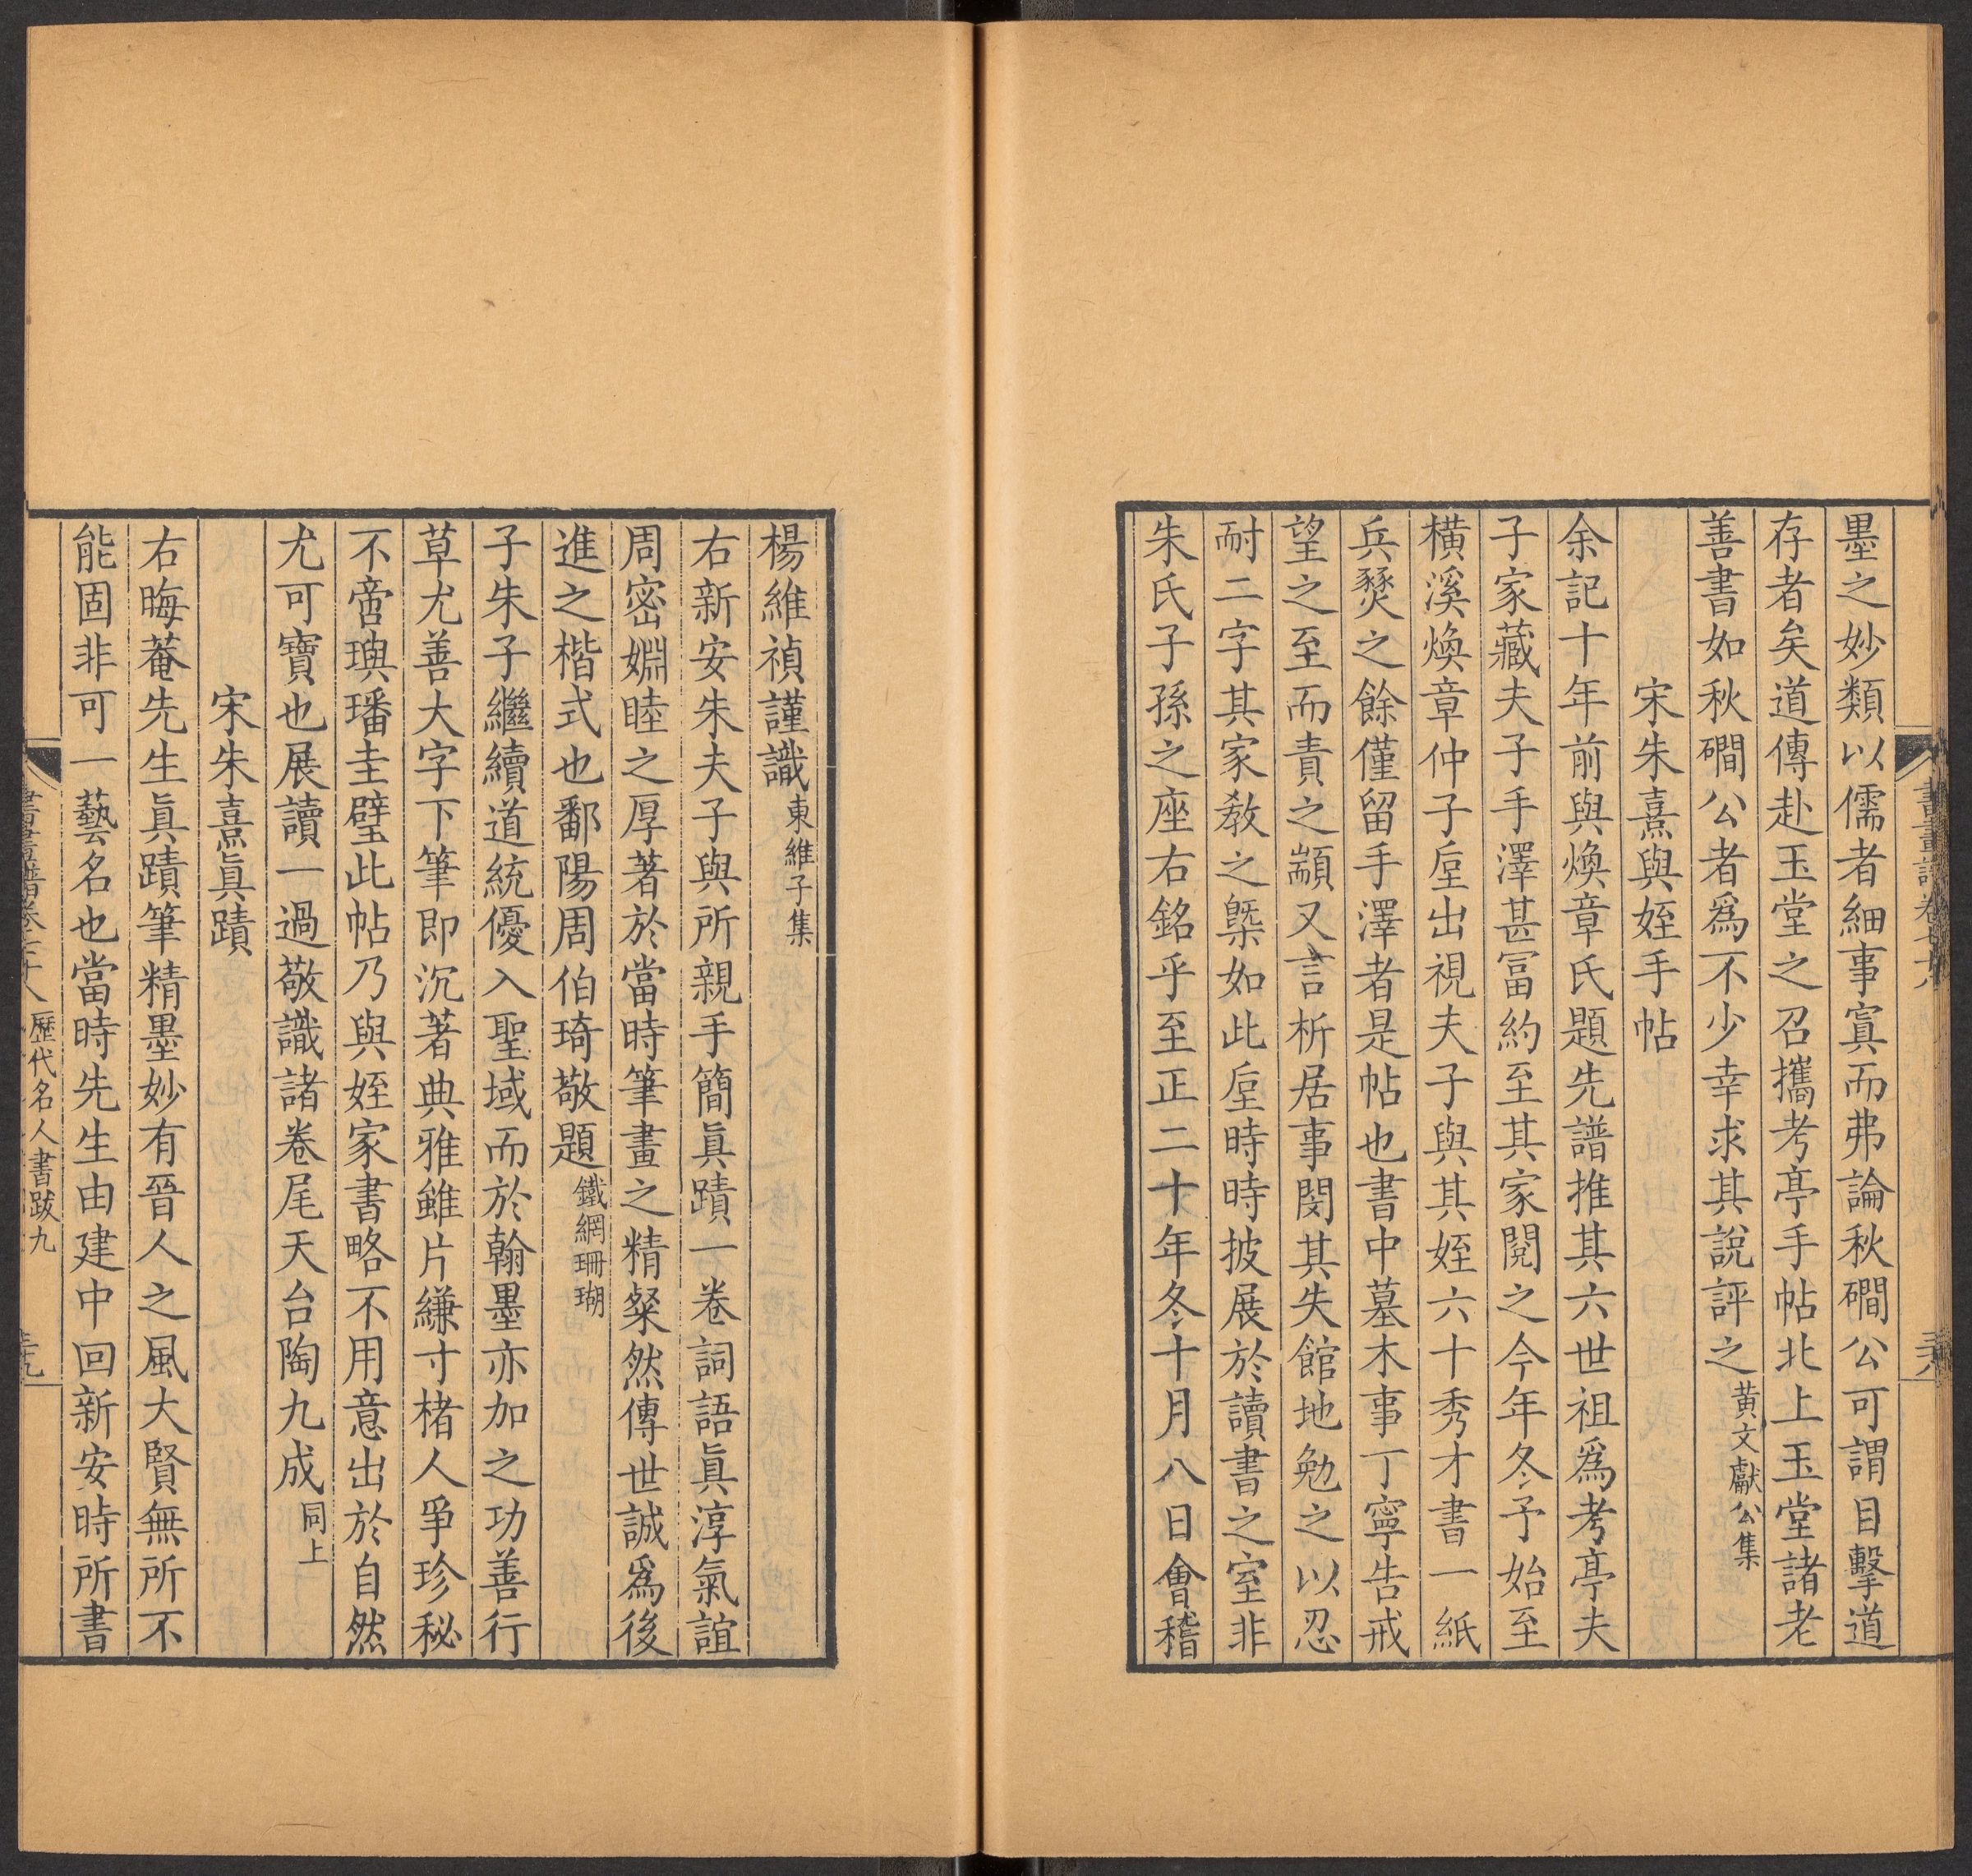 墨之妙類以儒者細事寘而弗論秋磵公可謂目擊道
存者矣道傳赴玉堂之召攜考亭手帖北上玉堂諸老
善書如秋磵公者爲不少幸求其說評之黄文獻公集
宋朱熹與姪手帖
余記十年前與煥章氏題先譜推其六世祖爲考亭夫
子家藏夫子手澤甚冨約至其家閱之今年冬予始至
橫溪煥章仲子垕出視夫子與其姪六十秀才書一紙
兵燹之餘僅留手澤者是帖也書中墓木事丁寧告戒
望之至而責之顓又言析居事閔其失館地勉之以忍
耐二字其家敎之槩如此垕時時披展於讀書之室非
朱氏子孫之座右銘乎至正二十年冬十月八日會稽
楊維禎謹識東維子集
右新安朱夫子與所親手簡眞蹟一卷詞語眞淳氣誼
周密婣睦之厚著於當時筆畫之精粲然傳世誠爲後
進之楷式也鄱陽周伯琦敬題鐵網珊瑚
子朱子繼續道統優入聖域而於翰墨亦加之功善行
草尤善大字下筆即沉著典雅雖片縑寸楮人爭珍秘
不啻璵璠圭璧此帖乃與姪家書略不用意出於自然
尤可寶也展讀一過敬識諸卷尾天台陶九成同上
宋朱熹眞蹟
右晦菴先生眞蹟筆精墨妙有晉人之風大賢無所不
能固非可一藝名也當時先生由建中回新安時所書
歷代名人書跋九